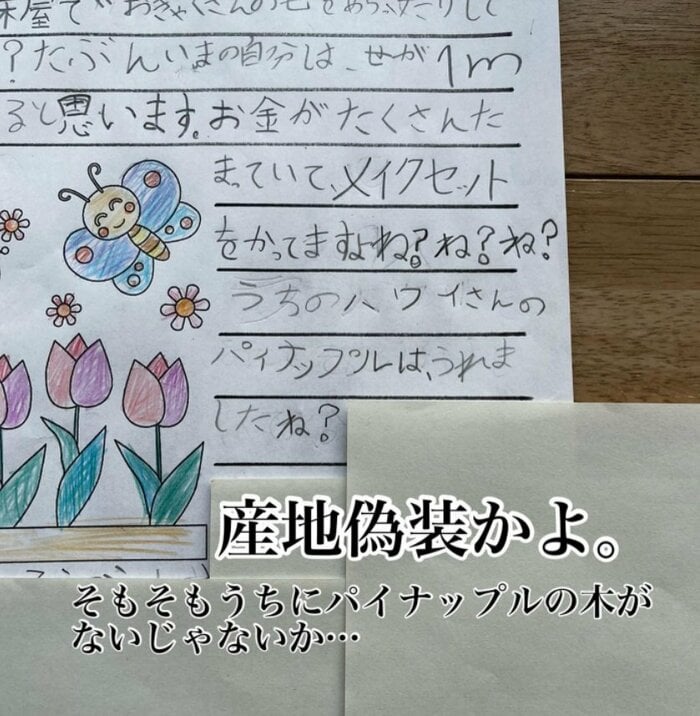 床屋で おきゃくさんの毛を
?たぶんいまの自分は、せが1m
ると思います。お金がたくさんた
まっていて、メイクセット
をかってますよね?ね?ね?
うちのハワイさんの
パイナップルは、うれま
したね?
産地偽装かよ。
そもそもうちにパイナップルの木が
ないじゃないか…